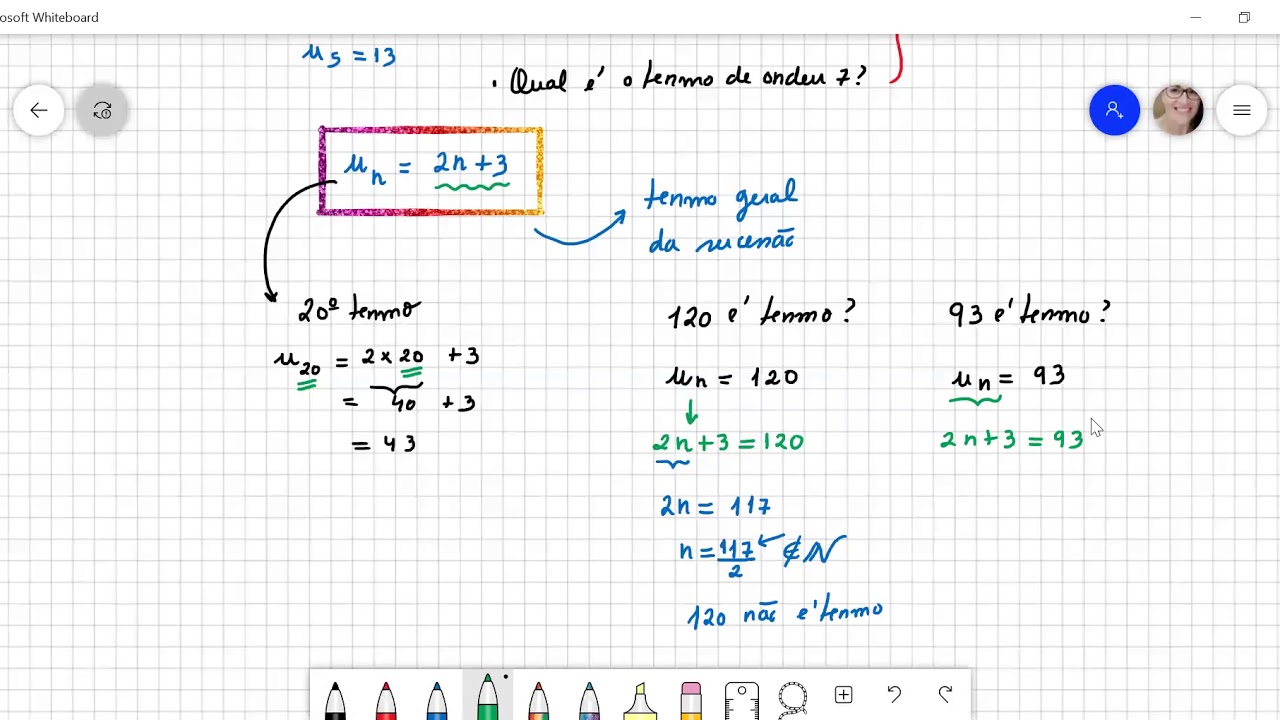 osoft Whiteboard
u5 = 13
• Qual é o termo de ordem 7?
un = 2n + 3
termo geral
da sucessão
20º termo
u20 = 2 × 20 + 3
= 40 + 3
= 43
120 é termo?
un = 120
2n + 3 = 120
2n = 117
n = 117/2 ∉ ℕ
120 não é termo
93 é termo?
un = 93
2n + 3 = 93